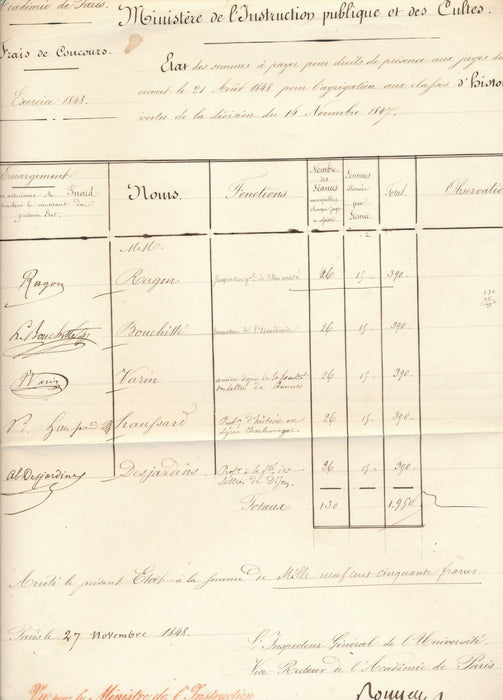 Académie de Paris.
Ministère de l'Instruction publique et des Cultes.
Frais de Concours.
Exercice 1848.
Etat des sommes à payer pour droits de présence aux juges du
ouvert le 21 Août 1848 pour l'agrégation aux classes d'histo
vertu de la décision du 14 Novembre 1847.
Emargement
M. Tuard
le montant du
présent Etat.
Noms.
Fonctions
Nombre
des
Séances
auxquelles
chaque juge
a assisté
Sommes
allouées
par
Séance
Total.
Observatio
M.M.
Ragon Ragon de l'Université 26 15 390
L. Bouchitté Bouchitté de l'Académie 26 15 390
Varin Varin ancien doyen de la faculté 26 15 390
des lettres de Rennes
Haussard Haussard Profr d'histoire au 26 15 390
lycée Charlemagne
Ab. Desjardins Desjardins. Profr à la fté des 26 15 390
lettres de Dijon.
Totaux 130 1.950
Arrêté le présent Etat à la somme de Mille neuf cent cinquante francs.
Paris le 27 Novembre 1848.
L'Inspecteur Général de l'Université.
Vice Recteur de l'Académie de Paris
Vu pour le Ministre de l'Instruction